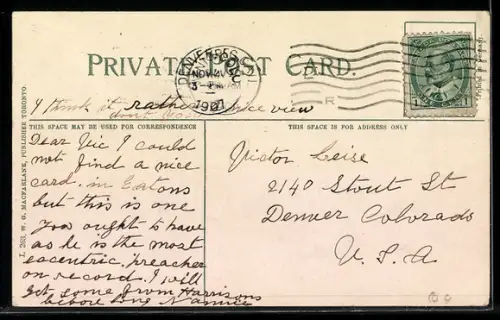 PRIVATE POST CARD.
DENVER
NOV 4
3 - PM
1907
R
I think it rather nice view
dont
THIS SPACE MAY BE USED FOR CORRESPONDENCE
THIS SPACE IS FOR ADDRESS ONLY
Dear Vic I could
not find a nice
card. in Eatons
but this is one
you ought to have
as he is the most
eccentric, preacher
on record. I will
get some from Harrisons
before long
Victor Leise
2140 Stout St
Denver Colorado
U. S. A
W. G. MACFARLANE, PUBLISHER TORONTO.